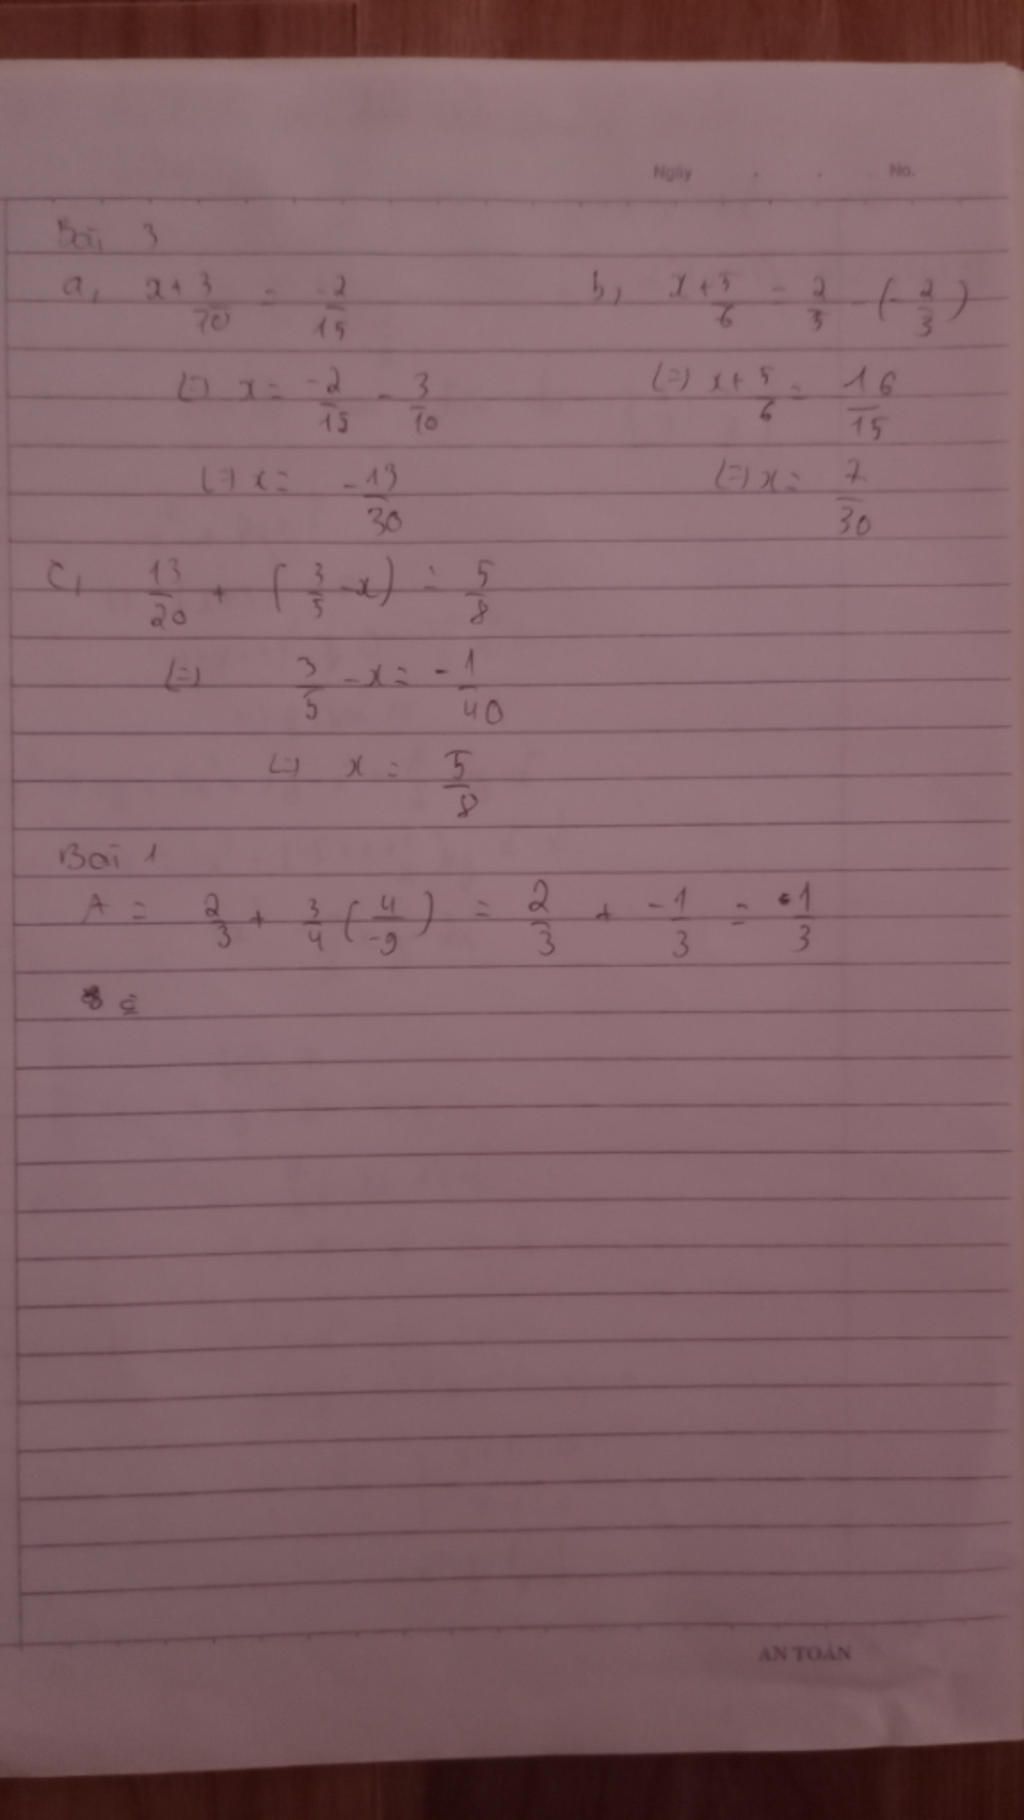 Ngày . . No.
Bài 3
a, x + 3/10 = -2/15
(=) x = -2/15 - 3/10
(=) x = -13/30
b, x + 5/6 = 2/5 - (-2/3)
(=) x + 5/6 = 16/15
(=) x = 7/30
c, 13/20 + (3/5 - x) = 5/8
(=) 3/5 - x = -1/40
(=) x = 5/8
Bài 1
A = 2/3 + 3/4 (4/-9) = 2/3 + -1/3 = 1/3
AN TOÀN